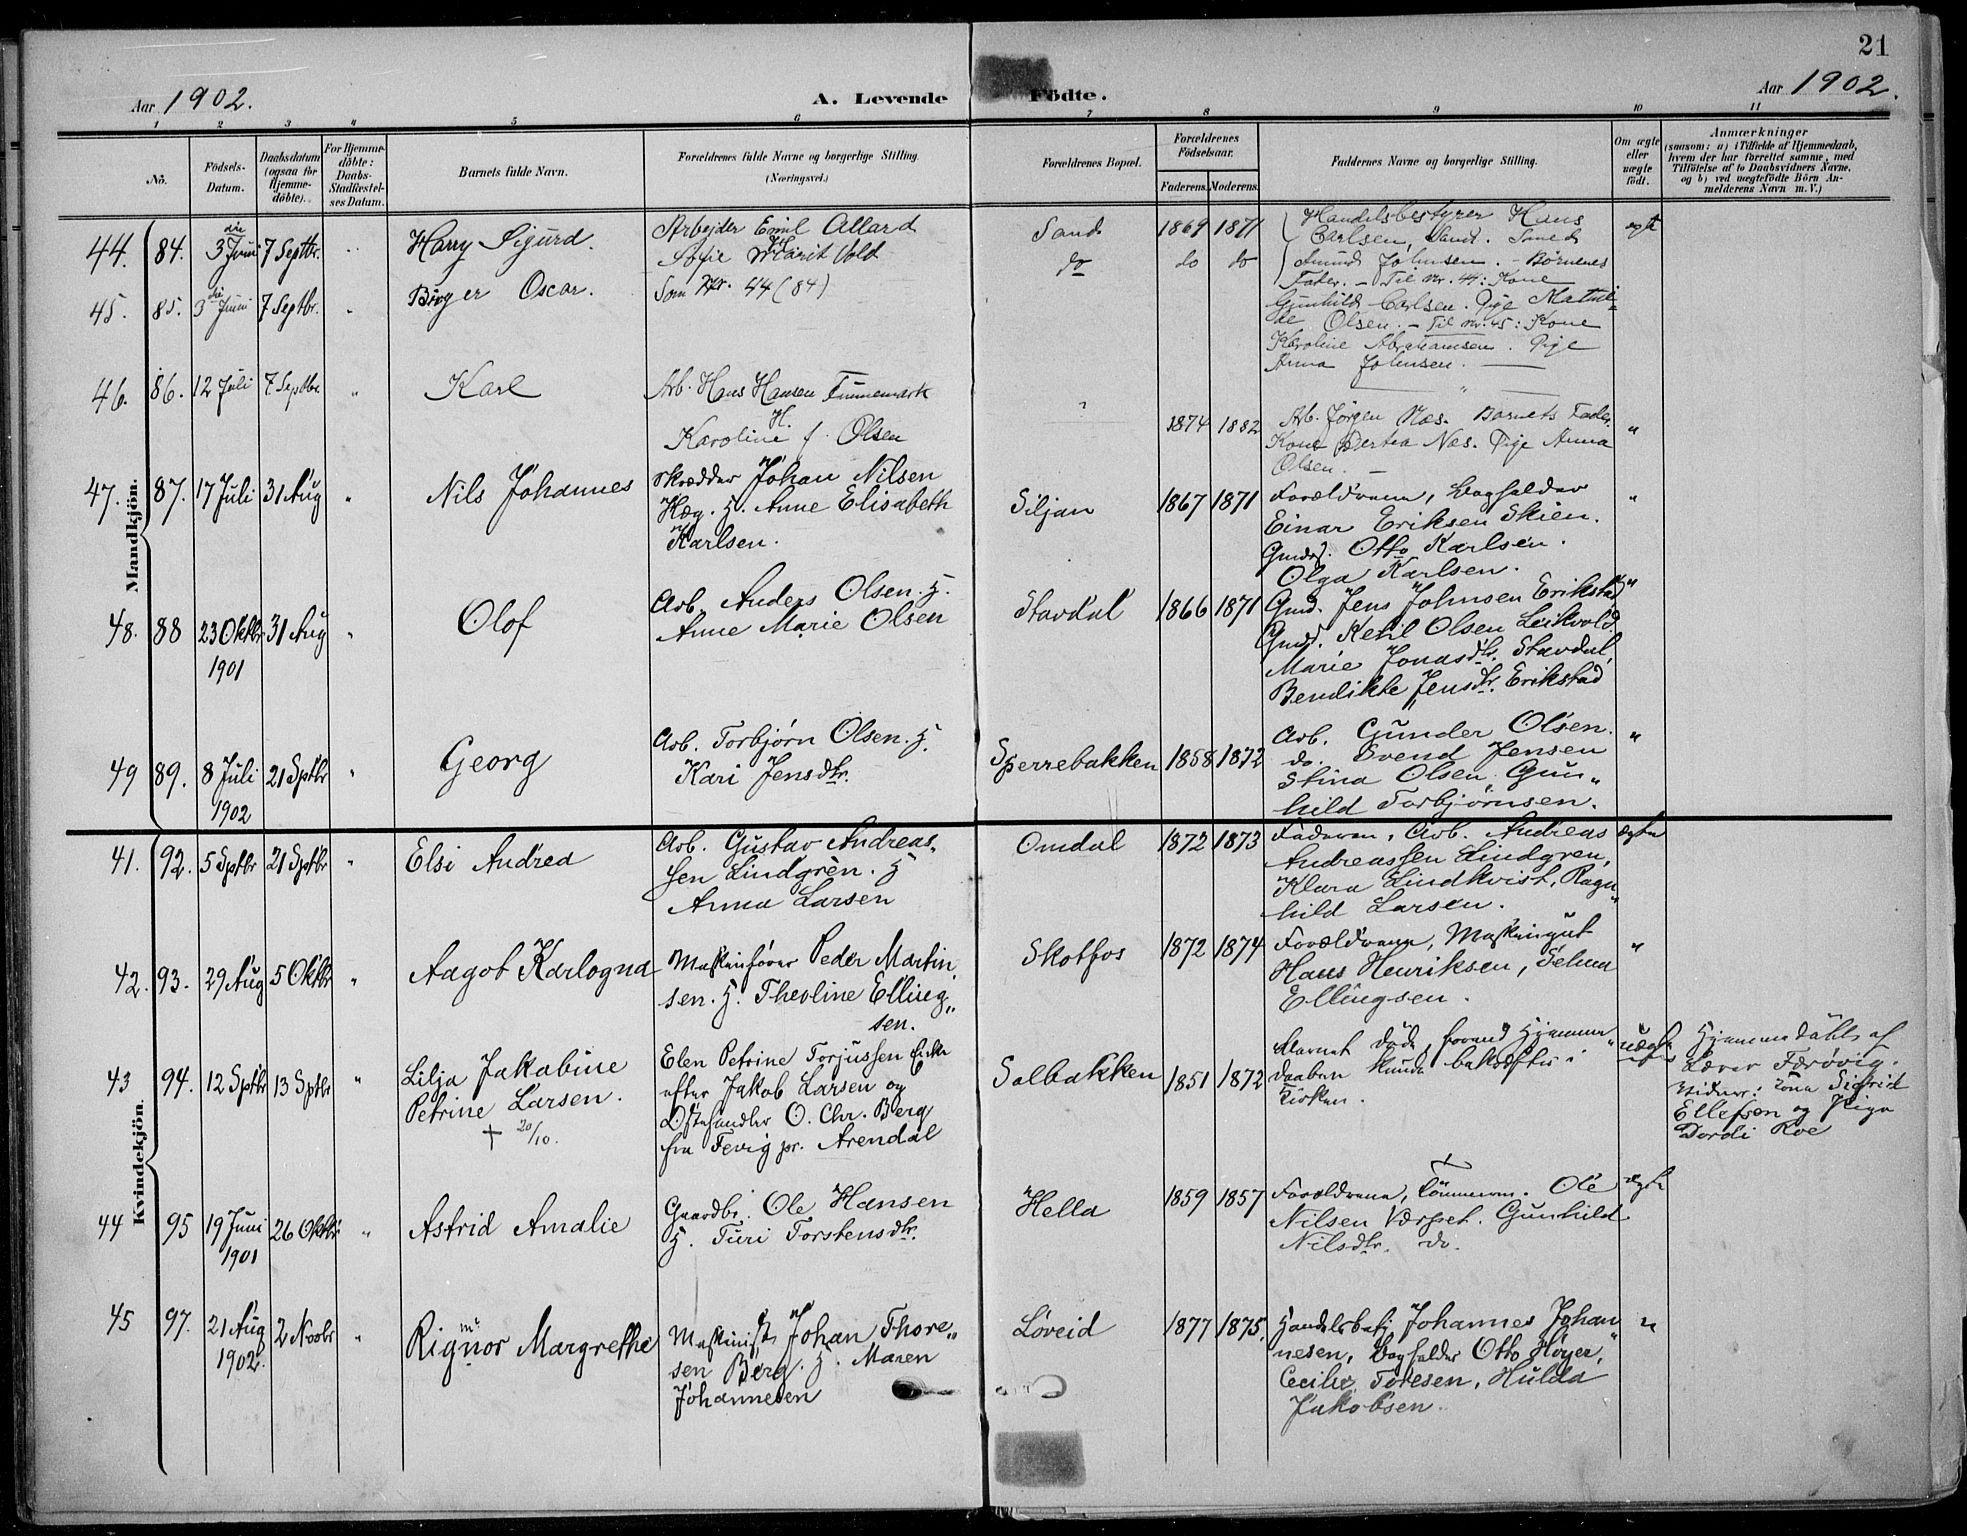 21
Aar 1902.
A. Levende Födte.
Aar 1902.
1 2 3 4 5 6 7 8 9 10 11
No.
Födsels-
Datum.
Daabsdatum
(ogsaa for
Hjemme-
döbte).
For Hjemme-
döbte:
Daabs-
Stadfæstel-
ses Datum.
Barnets fulde Navn.
Forældrenes fulde Navne og borgerlige Stilling.
(Næringsvei.)
Forældrenes Bopæl.
Forældrenes
Födselsaar.
Faderens. Moderens.
Faddernes Navne og borgerlige Stilling.
Om ægte
eller
uægte
födt.
Anmærkninger
(saasom: a) i Tilfælde af Hjemmedaab,
hvem der har forrettet samme, med
Tilföielse af to Daabsvidners Navne,
og b) ved uægtefödte Börn An-
melderens Navn m. V.)
Mandkjön.
44. 84. 3 Juni 7 Septbr. Harry Sigurd.
Arbejder Emil Allard
Sofie Marit Vold
Sand 1869 1871
Handelsbestyrer Hans
Carlsen, Sand.
ægte
45. 85. 3 Juni 7 Septbr. " Birger Oscar.
Som Nr. 44 (84)
do do do
Amund Johnsen. - Börnenes
Fader. - Til Nr. 44: Kone
Gunhild Carlsen. Pige Mathil-
de Olsen. - Til nr. 45: Kone
Karoline Abrahamsen. Pige
Anna Johnsen.
46. 86. 12 Juli 7 Septbr. " Karl
Arb. Hans Hansen Finnemark
H.
Karoline f. Olsen
" 1874 1882
Arb. Jörgen Næs. Barnets Fader.
Kone Bertea Næs. Pige Anna
Olsen.
"
47. 87. 17 Juli 31 Aug " Nils Johannes
Skrædder Johan Nilsen
Hæg. H. Anne Elisabeth
Karlsen.
Siljan 1867 1871
Forældrene, Bogholder
Einar Eriksen Skien.
Gmdr. Otto Karlsen.
Olga Karlsen.
"
48. 88 23 Oktbr 1901 31 Aug " Olof
Arb. Anders Olsen. H.
Anne Marie Olsen
Stavdal 1866 1871
Gmd. Jens Johnsen Erikstad
Gmd. Ketil Olsen Leikvold
Marie Jonasdtr. Stavdal,
Bendikte Jensdtr. Erikstad
"
49 89. 8 Juli 1902 21 Sptbr " Georg
Arb. Torbjørn Olsen. H.
Kari Jensdtr.
Sperrebakken 1858 1872
Arb. Gunder Olsen.
do. Svend Jensen
Stina Olsen. Gun-
hild Torbjørnsen.
"
Kvindekjön.
41. 92. 5 Sptbr 21 Sptbr " Elsi Andrea
Arb. Gustav Andreas-
sen Lindgren. H
Anna Larsen
Omdal 1872 1873
Faderen, Arb. Andreas
Andreassen Lindgren,
Klara Lindkvist, Ragn-
hild Larsen.
ægte
42. 93. 29 Aug 5 Oktbr " Aagot Karlogna
Maskinfører Peder Martin-
sen. H. Theoline Elling-
sen.
Skotfos 1872 1874
Forældrene, Maskingut
Hans Henriksen, Selma
Ellingsen.
"
43 94. 12 Sptbr 13 Sptbr " Lilja Jakobine
Petrine Larsen.
+ 20/10.
Elen Petrine Torjussen Enke
efter Jakob Larsen og
O. Chr. Berg
fra Fevig pr. Arendal
Solbakken 1851 1872
Barnet døde, forend Hjemme-
daaben kunde bekræftes i
Kirken.
uægte
Hjemmedöbt af
Lærer Færövig.
Vidner: Kona Sigrid
Ellefsen og Pige
Dordi Roe
44 95 19 Juni 1901 26 Oktbr " Astrid Amalie
Gaardbr. Ole Hansen
H. Turi Torstensdtr.
Hella 1859 1857
Forældrene, Tømmerm. Ole
Nilsen Gunhild
Nilsdtr. do.
ægte
45 97. 21 Aug 1902. 2 Novbr " Rignor Margrethe
Maskinist Johan Thore-
sen Berg. H. Maren
Johannesen
Løveid 1877 1875.
Handelsbetj Johannes Johan-
nesen, Bogholder Otto Høyer,
Cecilie Toresen, Hulda
Jakobsen.
"